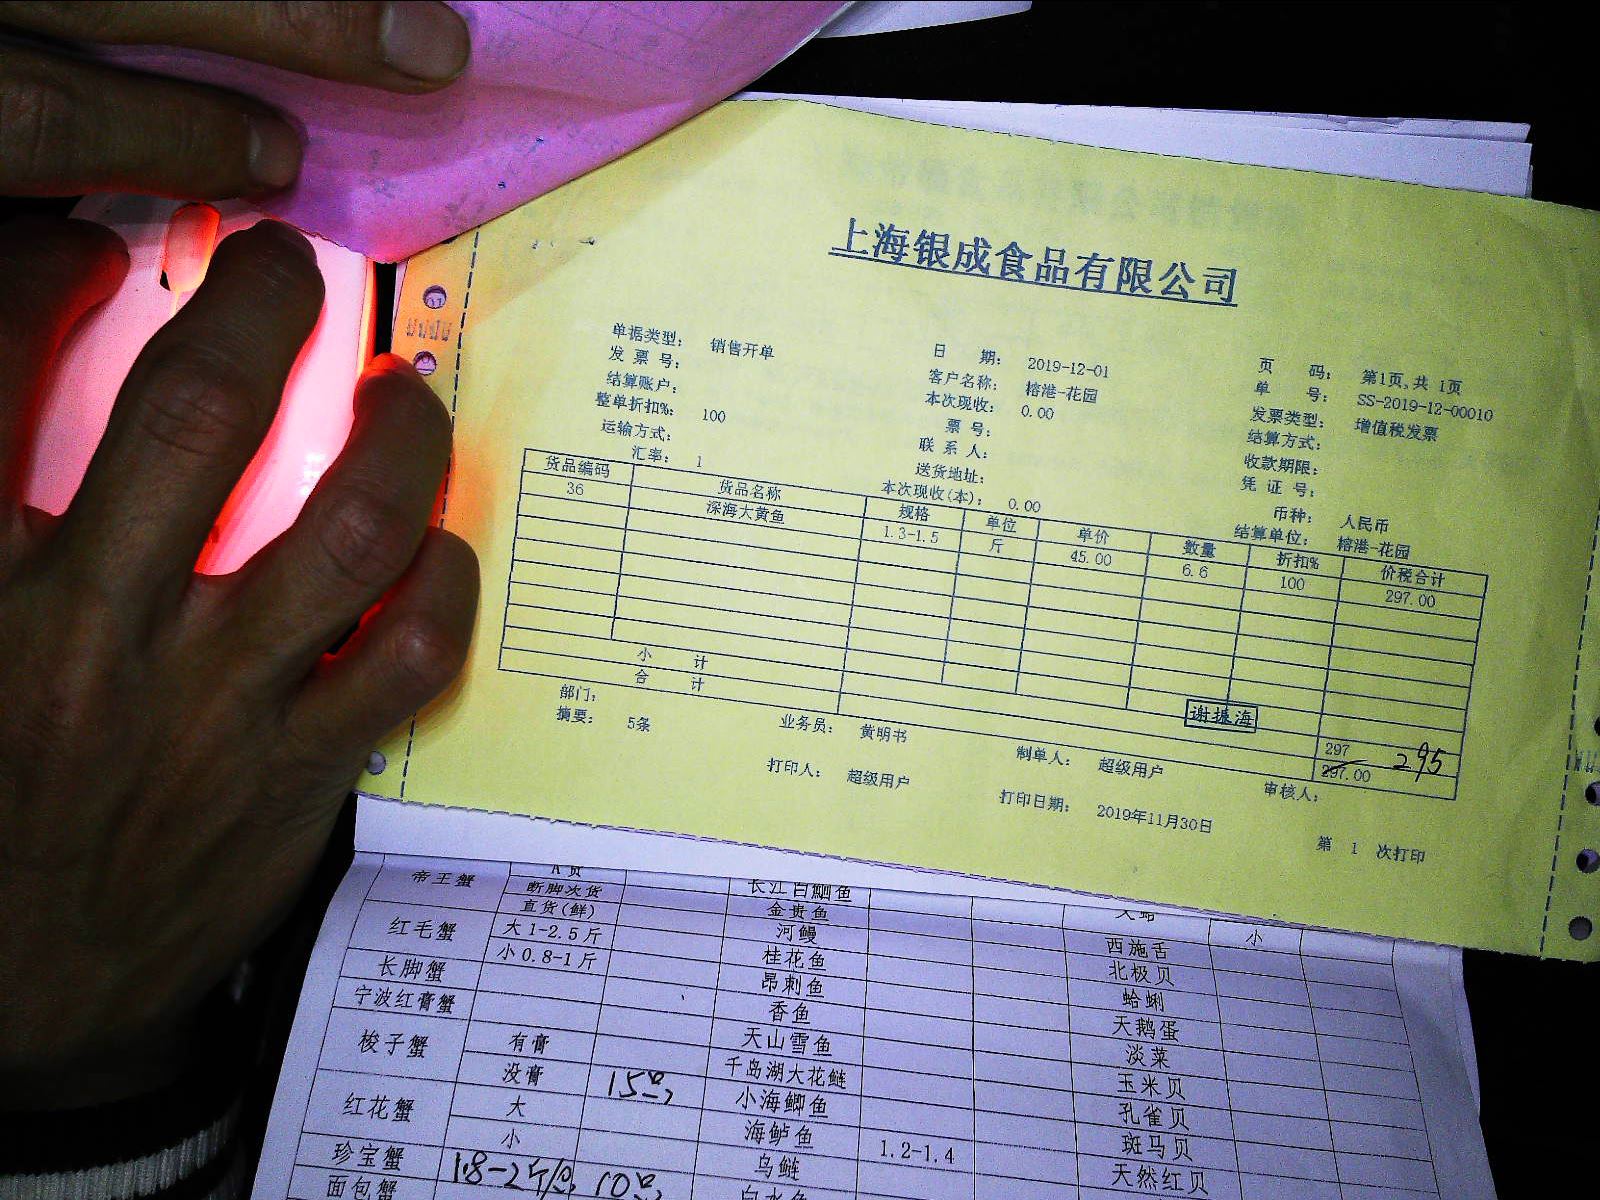 上海银成食品有限公司
单据类型: 销售开单 日 期: 2019-12-01 页 码: 第1页,共 1页
发 票 号: 客户名称: 榕港-花园 单 号: SS-2019-12-00010
结算账户: 本次现收: 0.00 发票类型: 增值税发票
整单折扣%: 100 票 号: 结算方式:
运输方式: 联 系 人: 收款期限:
汇率: 1 送货地址: 凭 证 号:
本次现收(本): 0.00 币种: 人民币
结算单位: 榕港-花园
货品编码 货品名称 规格 单位 单价 数量 折扣% 价税合计
36 深海大黄鱼 1.3-1.5 斤 45.00 6.6 100 297.00
小 计 297
合 计 297.00 295
谢振海
部门: 业务员: 黄明书 制单人: 超级用户 审核人:
摘要: 5条 打印人: 超级用户 打印日期: 2019年11月30日 第 1 次打印
帝王蟹 断脚次货 长江白鮰鱼
直货(鲜) 金贵鱼 小
红毛蟹 大1-2.5斤 河鳗 西施舌
小0.8-1斤 桂花鱼 北极贝
长脚蟹 昂刺鱼 蛤蜊
宁波红膏蟹 香鱼 天鹅蛋
梭子蟹 有膏 天山雪鱼 淡菜
没膏 15 千岛湖大花鲢 玉米贝
红花蟹 大 小海鲫鱼 孔雀贝
小 海鲈鱼 1.2-1.4 斑马贝
珍宝蟹 1.8-2斤 10 乌鲢 天然红贝
面包蟹